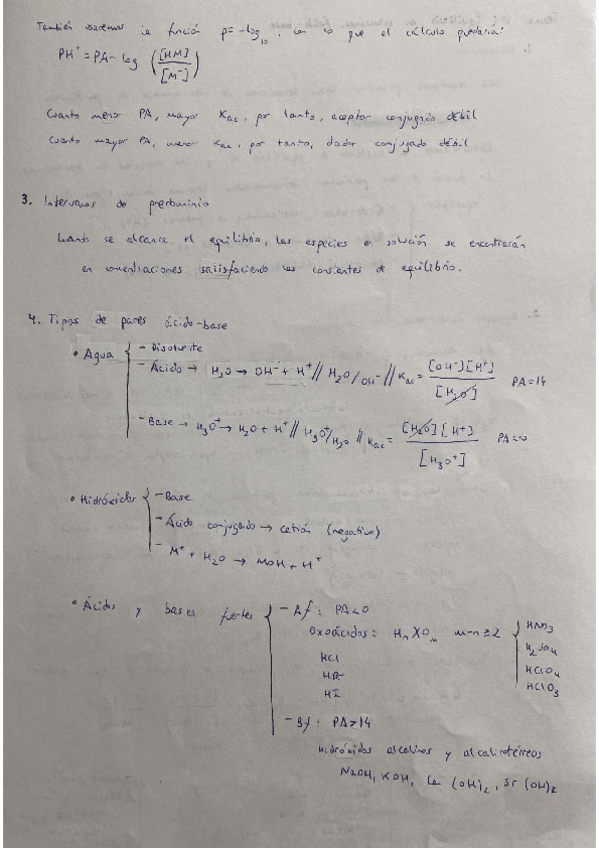 También usaremos la función p = -log₁₀, con lo que el cálculo quedaría:
PH⁺ = PA - log ([HM]/[M⁻])
Cuanto menor PA, mayor Kac, por tanto, aceptor conjugado débil
Cuanto mayor PA, menor Kac, por tanto, dador conjugado débil
3. Intervalos de predominio
Cuando se alcanza el equilibrio, las especies en solución se encontrarán
en concentraciones satisfaciendo las constantes de equilibrio.
4. Tipos de pares ácido-base
• Agua
- Disolvente
- Ácido → H₂O → OH⁻ + H⁺ // H₂O/OH⁻ // Kac = [OH⁻][H⁺]/[H₂O] PA=14
- Base → H₃O⁺ → H₂O + H⁺ // H₃O⁺/H₂O // Kac = [H₂O][H⁺]/[H₃O⁺] PA=0
• Hidróxidos
- Base
- Ácido conjugado → catión (negativo)
- M⁺ + H₂O → MOH + H⁺
• Ácidos y bases fuertes
- Af: PA<0
Oxoácidos: HₙXOₘ m-n≥2
HNO₃
H₂SO₄
HClO₄
HClO₃
HCl
HBr
HI
- Bf: PA>14
Hidróxidos alcalinos y alcalinotérreos
NaOH, KOH, Ca(OH)₂, Sr(OH)₂